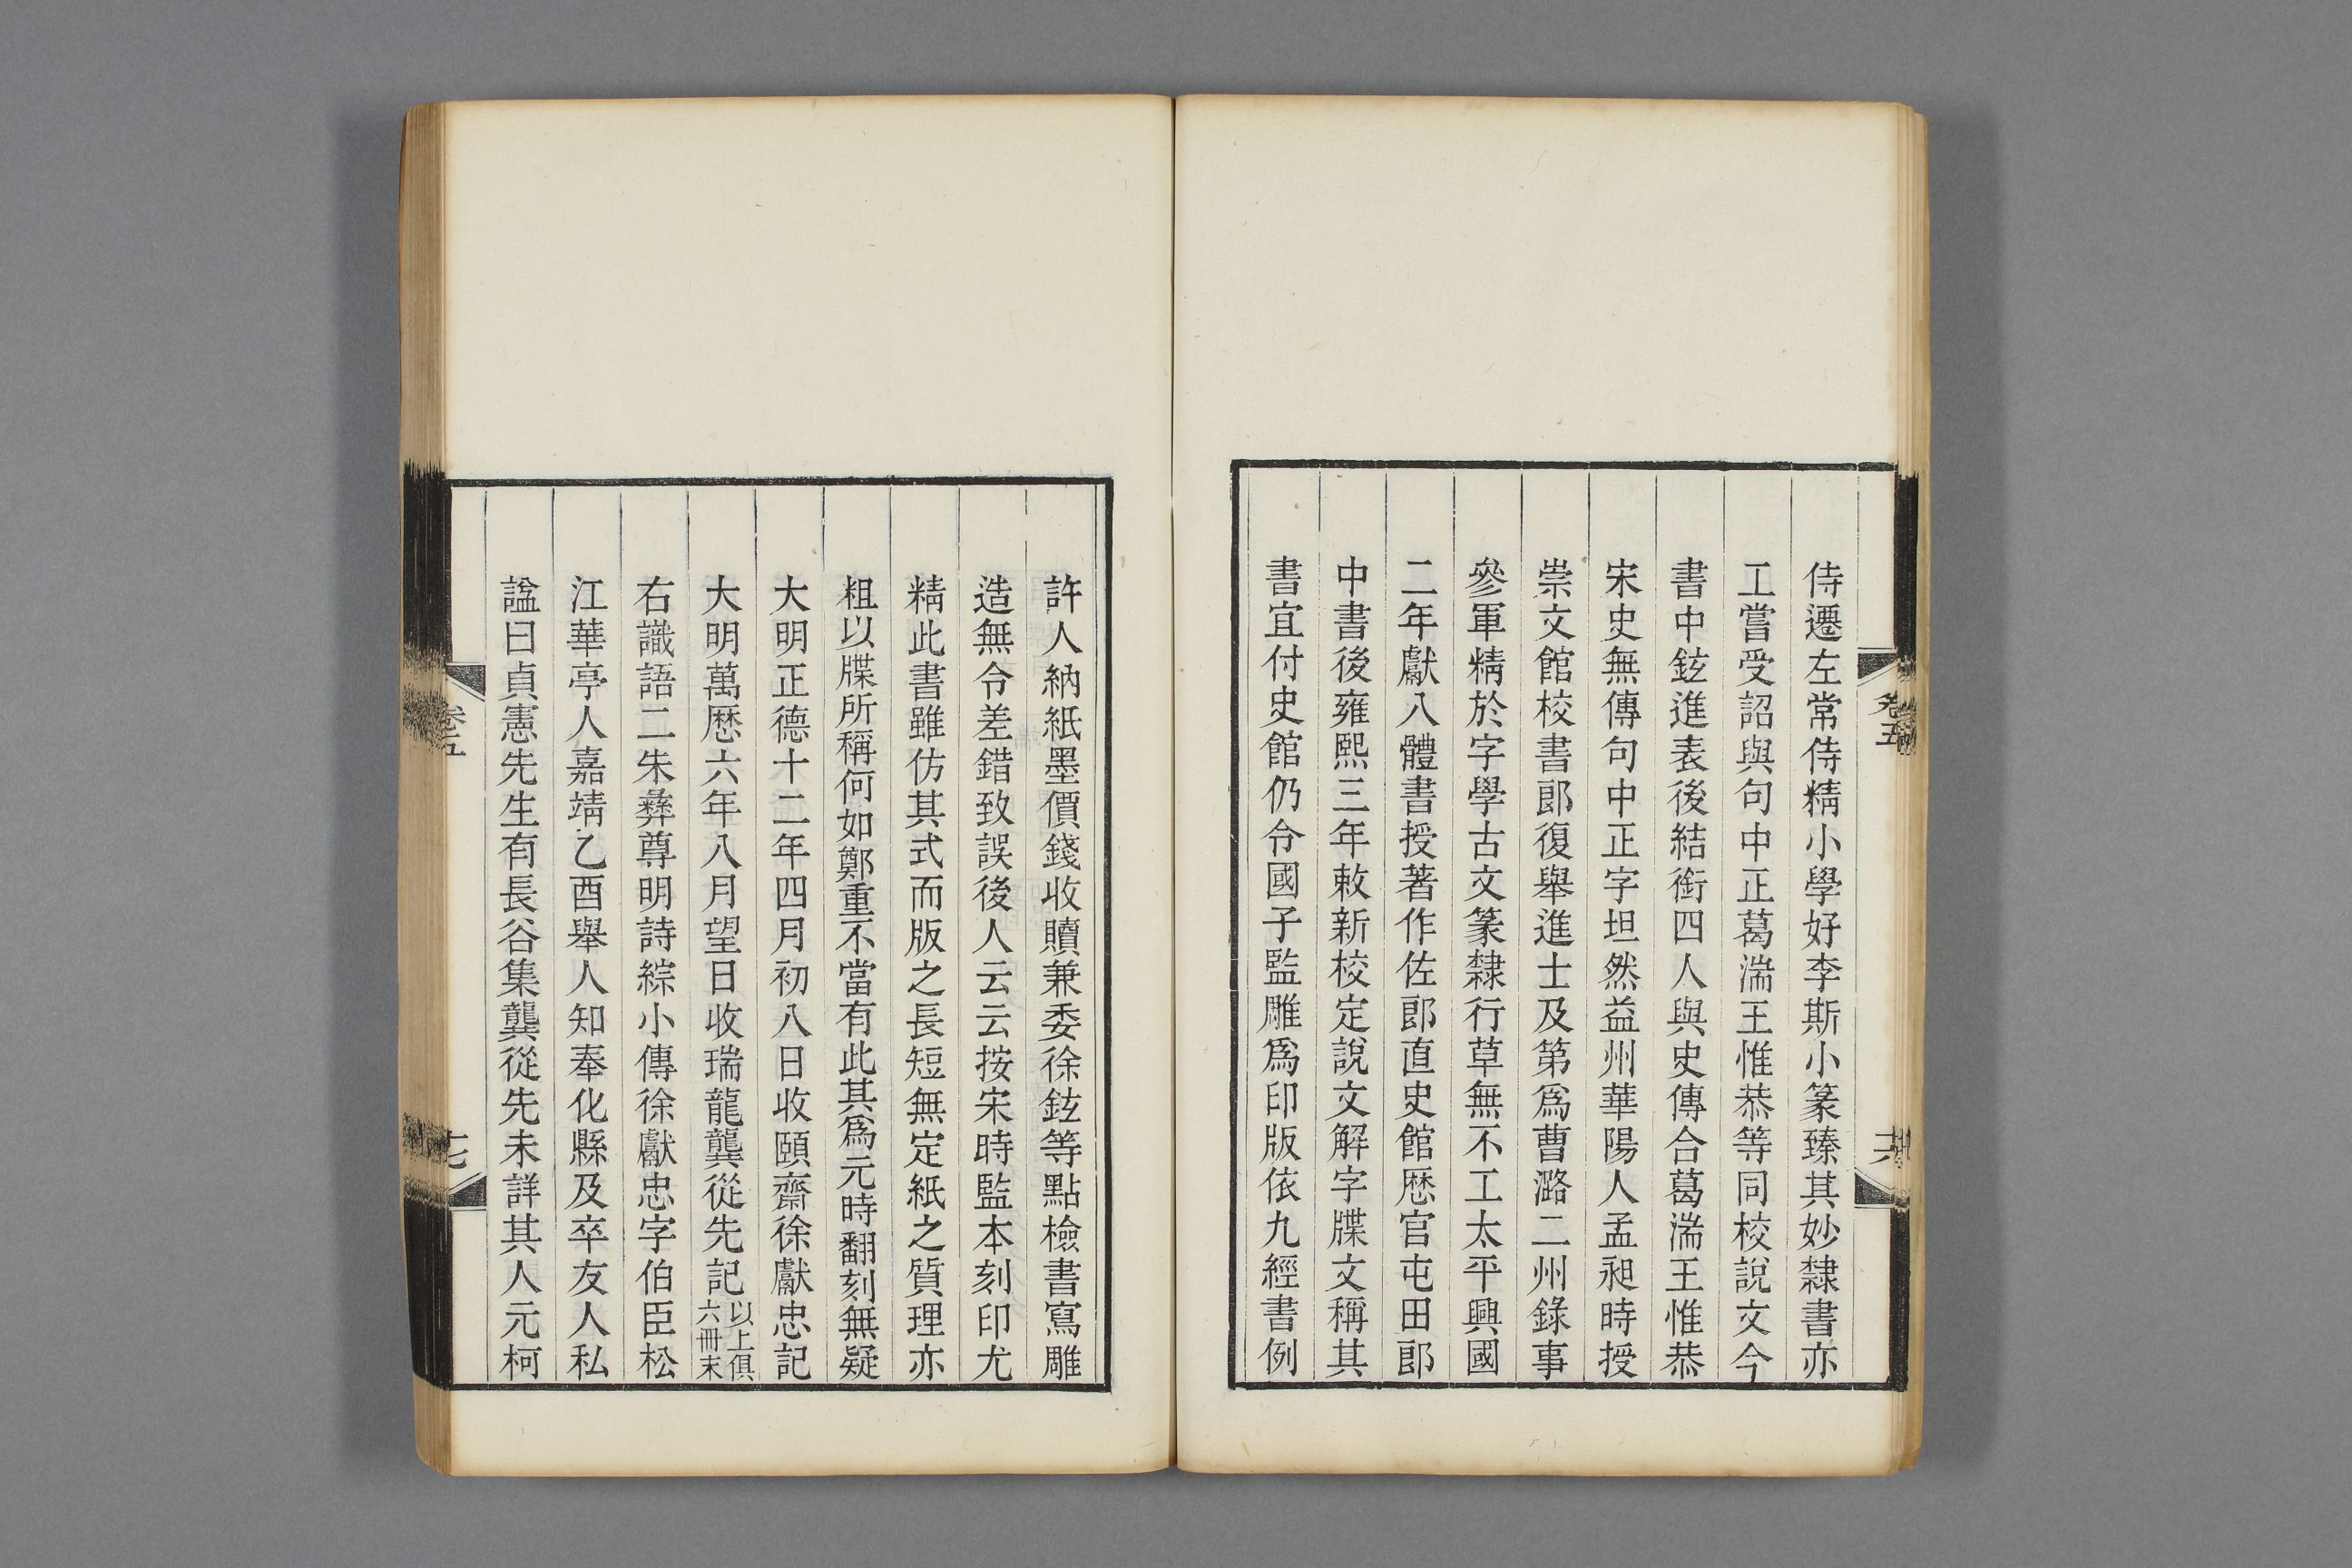 侍遷左常侍精小學好李斯小篆臻其妙隸書亦
工嘗受詔與句中正葛湍王惟恭等同校說文今
書中鉉進表後結銜四人與史傳合葛湍王惟恭
宋史無傳句中正字坦然益州華陽人孟昶時授
崇文館校書郎復舉進士及第爲曹潞二州錄事
參軍精於字學古文篆隸行草無不工太平興國
二年獻八體書授著作佐郎直史館歷官屯田郎
中書後雍熙三年敕新校定說文解字牒文稱其
書宜付史館仍令國子監雕爲印版依九經書例
許人納紙墨價錢收贖兼委徐鉉等點檢書寫雕
造無令差錯致誤後人云云按宋時監本刻印尤
精此書雖仿其式而版之長短無定紙之質理亦
粗以牒所稱何如鄭重不當有此其爲元時翻刻無疑
大明正德十二年四月初八日收頤齋徐獻忠記
大明萬歷六年八月望日收瑞龍龔從先記以上俱六冊末
右識語二朱彝尊明詩綜小傳徐獻忠字伯臣松
江華亭人嘉靖乙酉舉人知奉化縣及卒友人私
諡曰貞憲先生有長谷集龔從先未詳其人元柯
卷五
卷五
十七